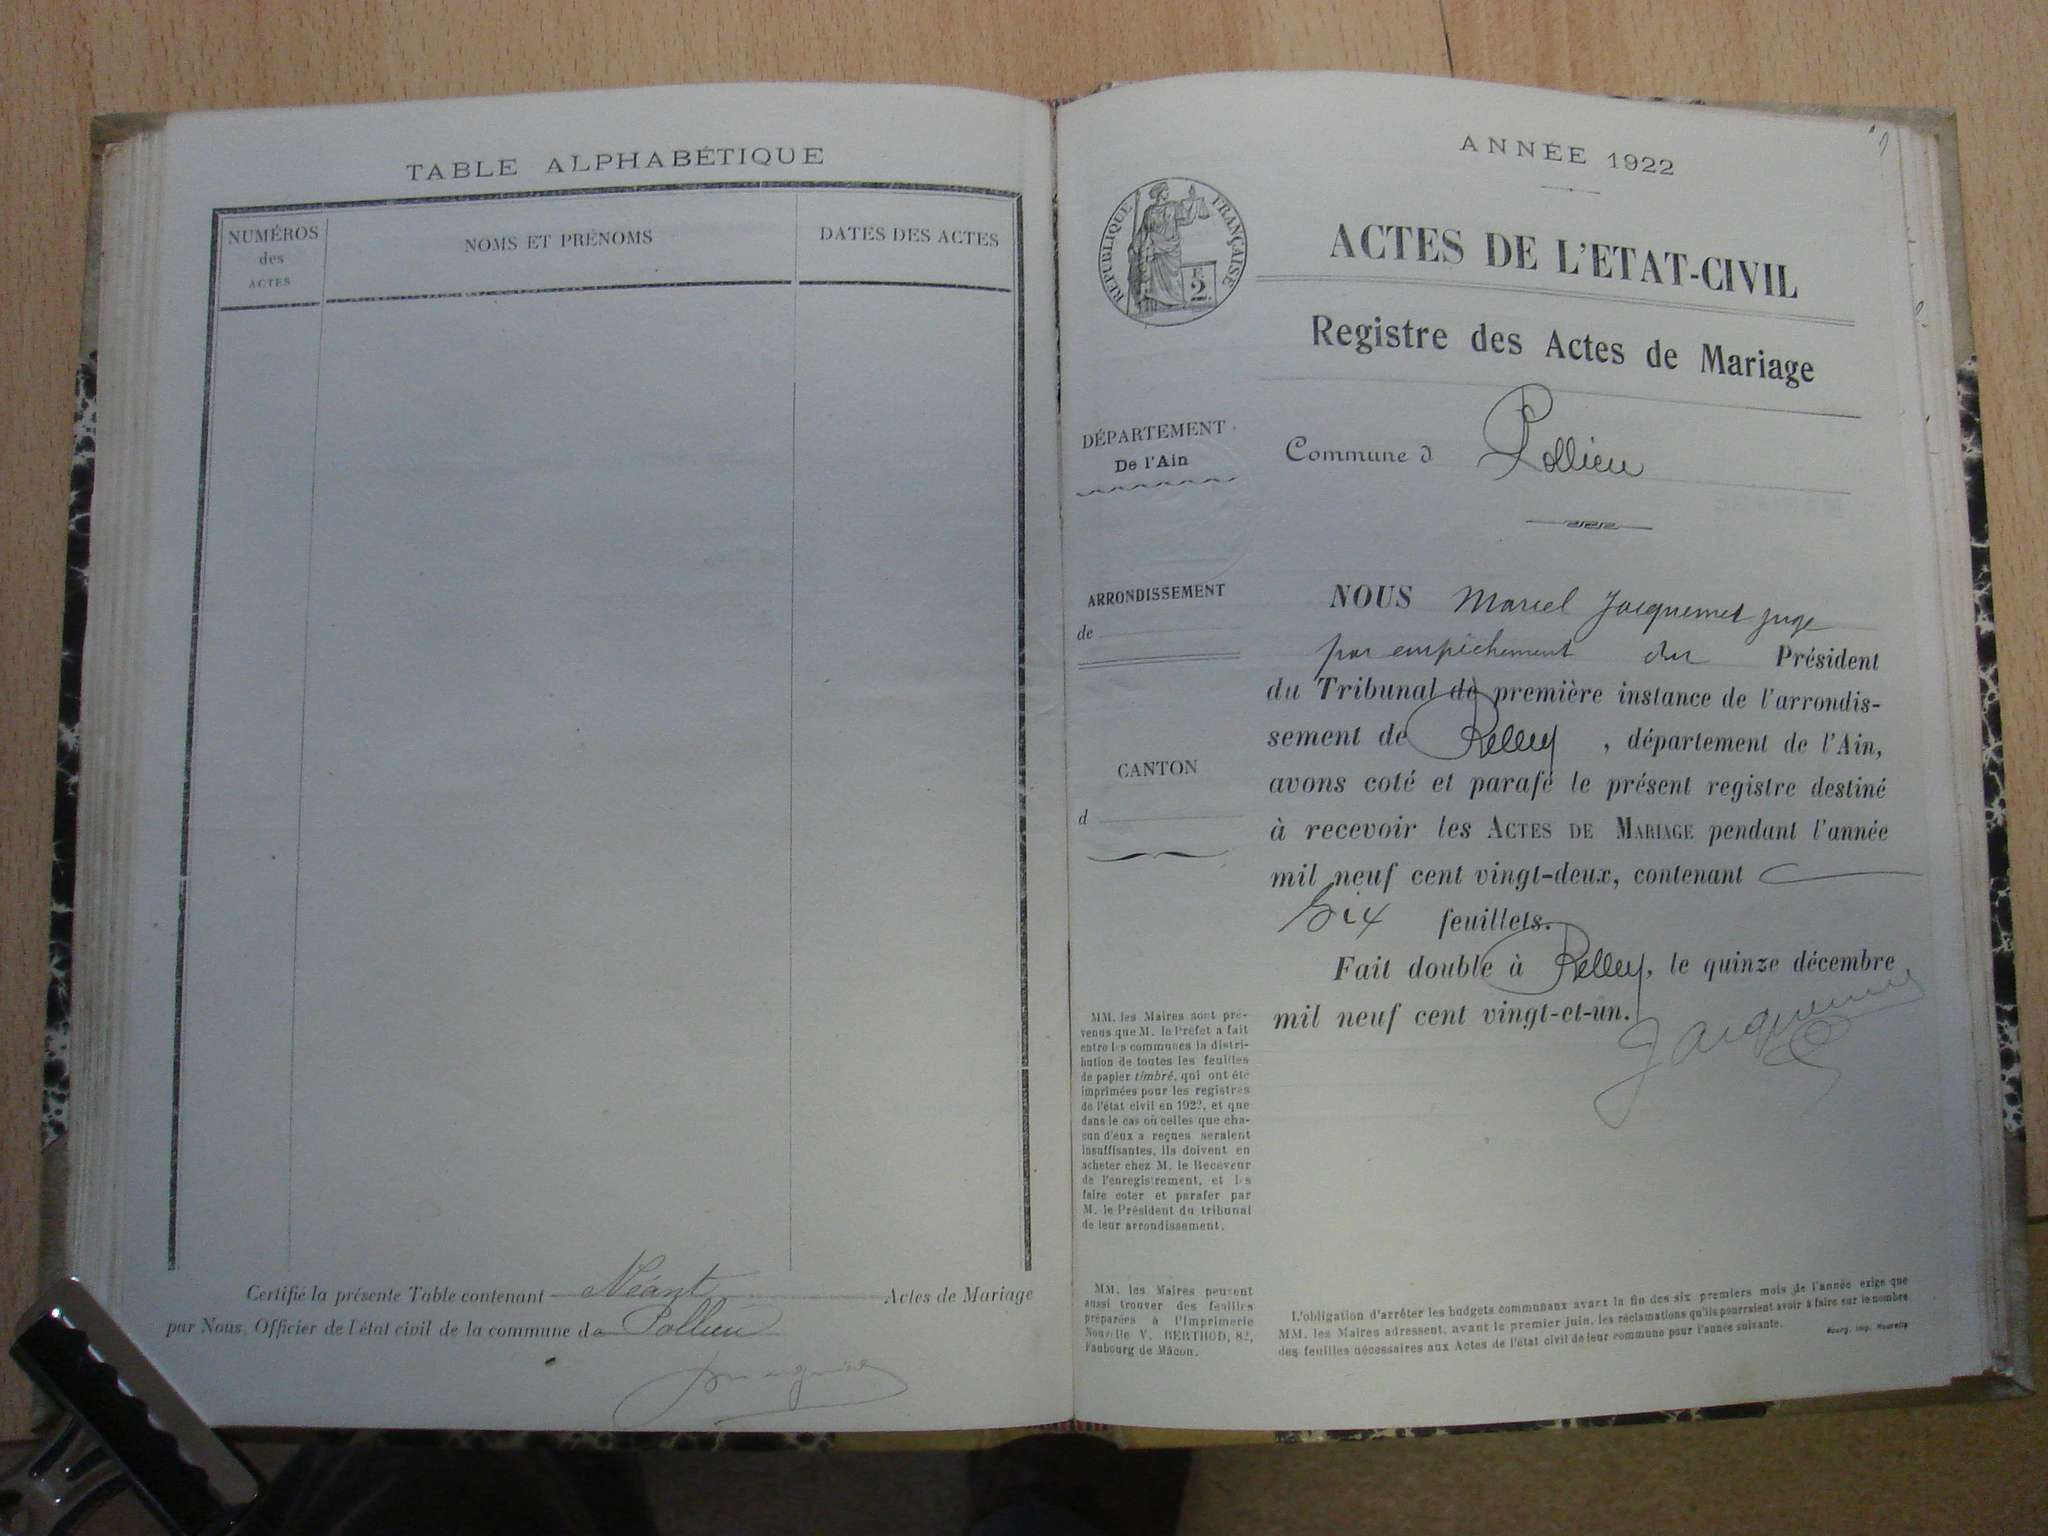 TABLE ALPHABÉTIQUE
NUMÉROS
des
ACTES
NOMS ET PRÉNOMS
DATES DES ACTES
Certifié la présente Table contenant Néant Actes de Mariage
par Nous, Officier de l'état civil de la commune de Pollieu
ANNÉE 1922
RÉPUBLIQUE FRANÇAISE
2
ACTES DE L'ETAT-CIVIL
Registre des Actes de Mariage
DÉPARTEMENT
De l'Ain
Commune d Pollieu
ARRONDISSEMENT
de
CANTON
d
NOUS Marcel Jacquemet juge
par empêchement du Président
du Tribunal de première instance de l'arrondis-
sement de Belley, département de l'Ain,
avons coté et parafé le présent registre destiné
à recevoir les ACTES DE MARIAGE pendant l'année
mil neuf cent vingt-deux, contenant
Six feuillets.
Fait double à Belley, le quinze décembre
mil neuf cent vingt-et-un.
Jacquemet
MM. les Maires sont pré-
venus que M. le Préfet a fait
entre les communes la distri-
bution de toutes les feuilles
de papier timbré, qui ont été
imprimées pour les registres
de l'état civil en 1922, et que
dans le cas où celles que cha-
cun d'eux a reçues seraient
insuffisantes, ils doivent en
acheter chez M. le Receveur
de l'enregistrement, et les
faire coter et parafer par
M. le Président du tribunal
de leur arrondissement.
MM. les Maires peuvent
aussi trouver des feuilles
préparées à l'Imprimerie
Nouvelle V. BERTHOD, 82,
Faubourg de Mâcon.
L'obligation d'arrêter les budgets communaux avant la fin des six premiers mois de l'année exige que
MM. les Maires adressent, avant le premier juin, les réclamations qu'ils pourraient avoir à faire sur le nombre
des feuilles nécessaires aux Actes de l'état civil de leur commune pour l'année suivante.
Bourg, imp. Nouvelle